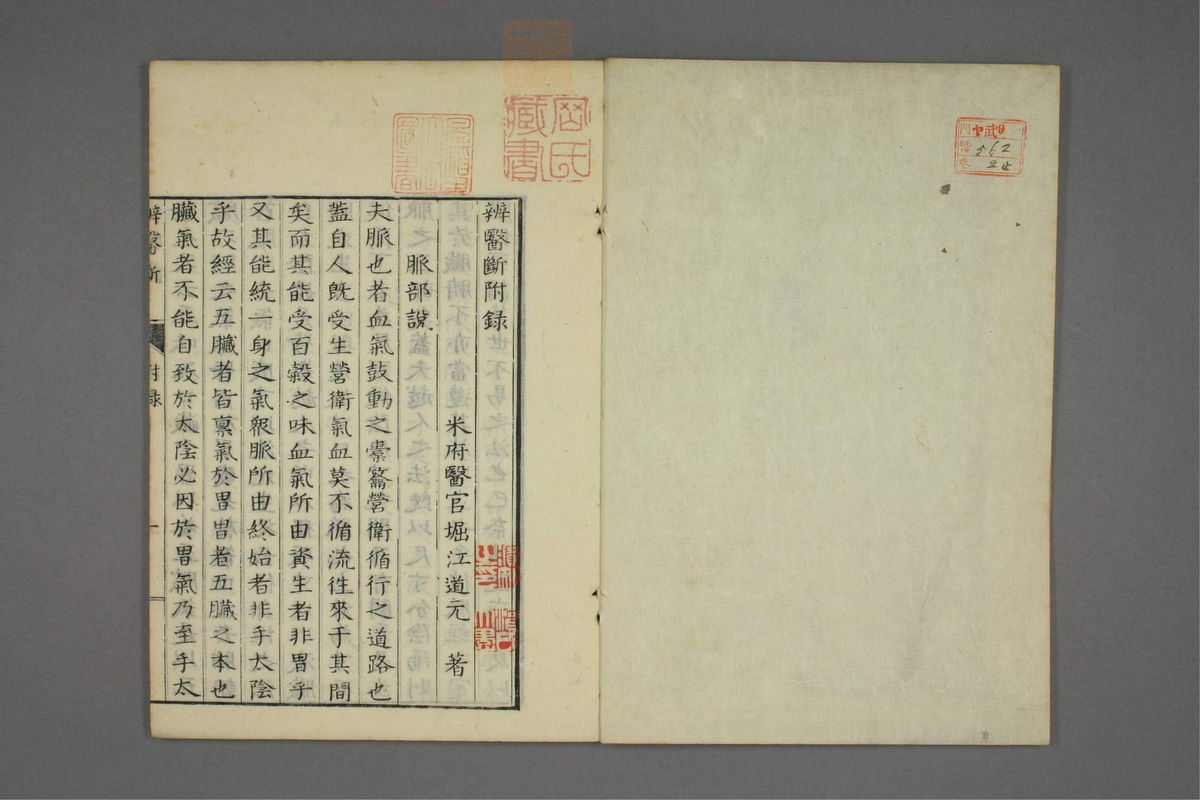 辨醫斷附錄
米府醫官堀江道元 著
脈部說
夫脈也者血氣鼓動之橐籥營衛循行之道路也
蓋自人既受生營衛氣血莫不循流往來于其間
矣而其能受百穀之味血氣所由資生者非胃乎
又其能統一身之氣衆脈所由終始者非手太陰
乎故經云五臟者皆稟氣於胃胃者五臟之本也
臟氣者不能自致於太陰必因於胃氣乃至手太
辨醫斷 附錄 一
藏書
562